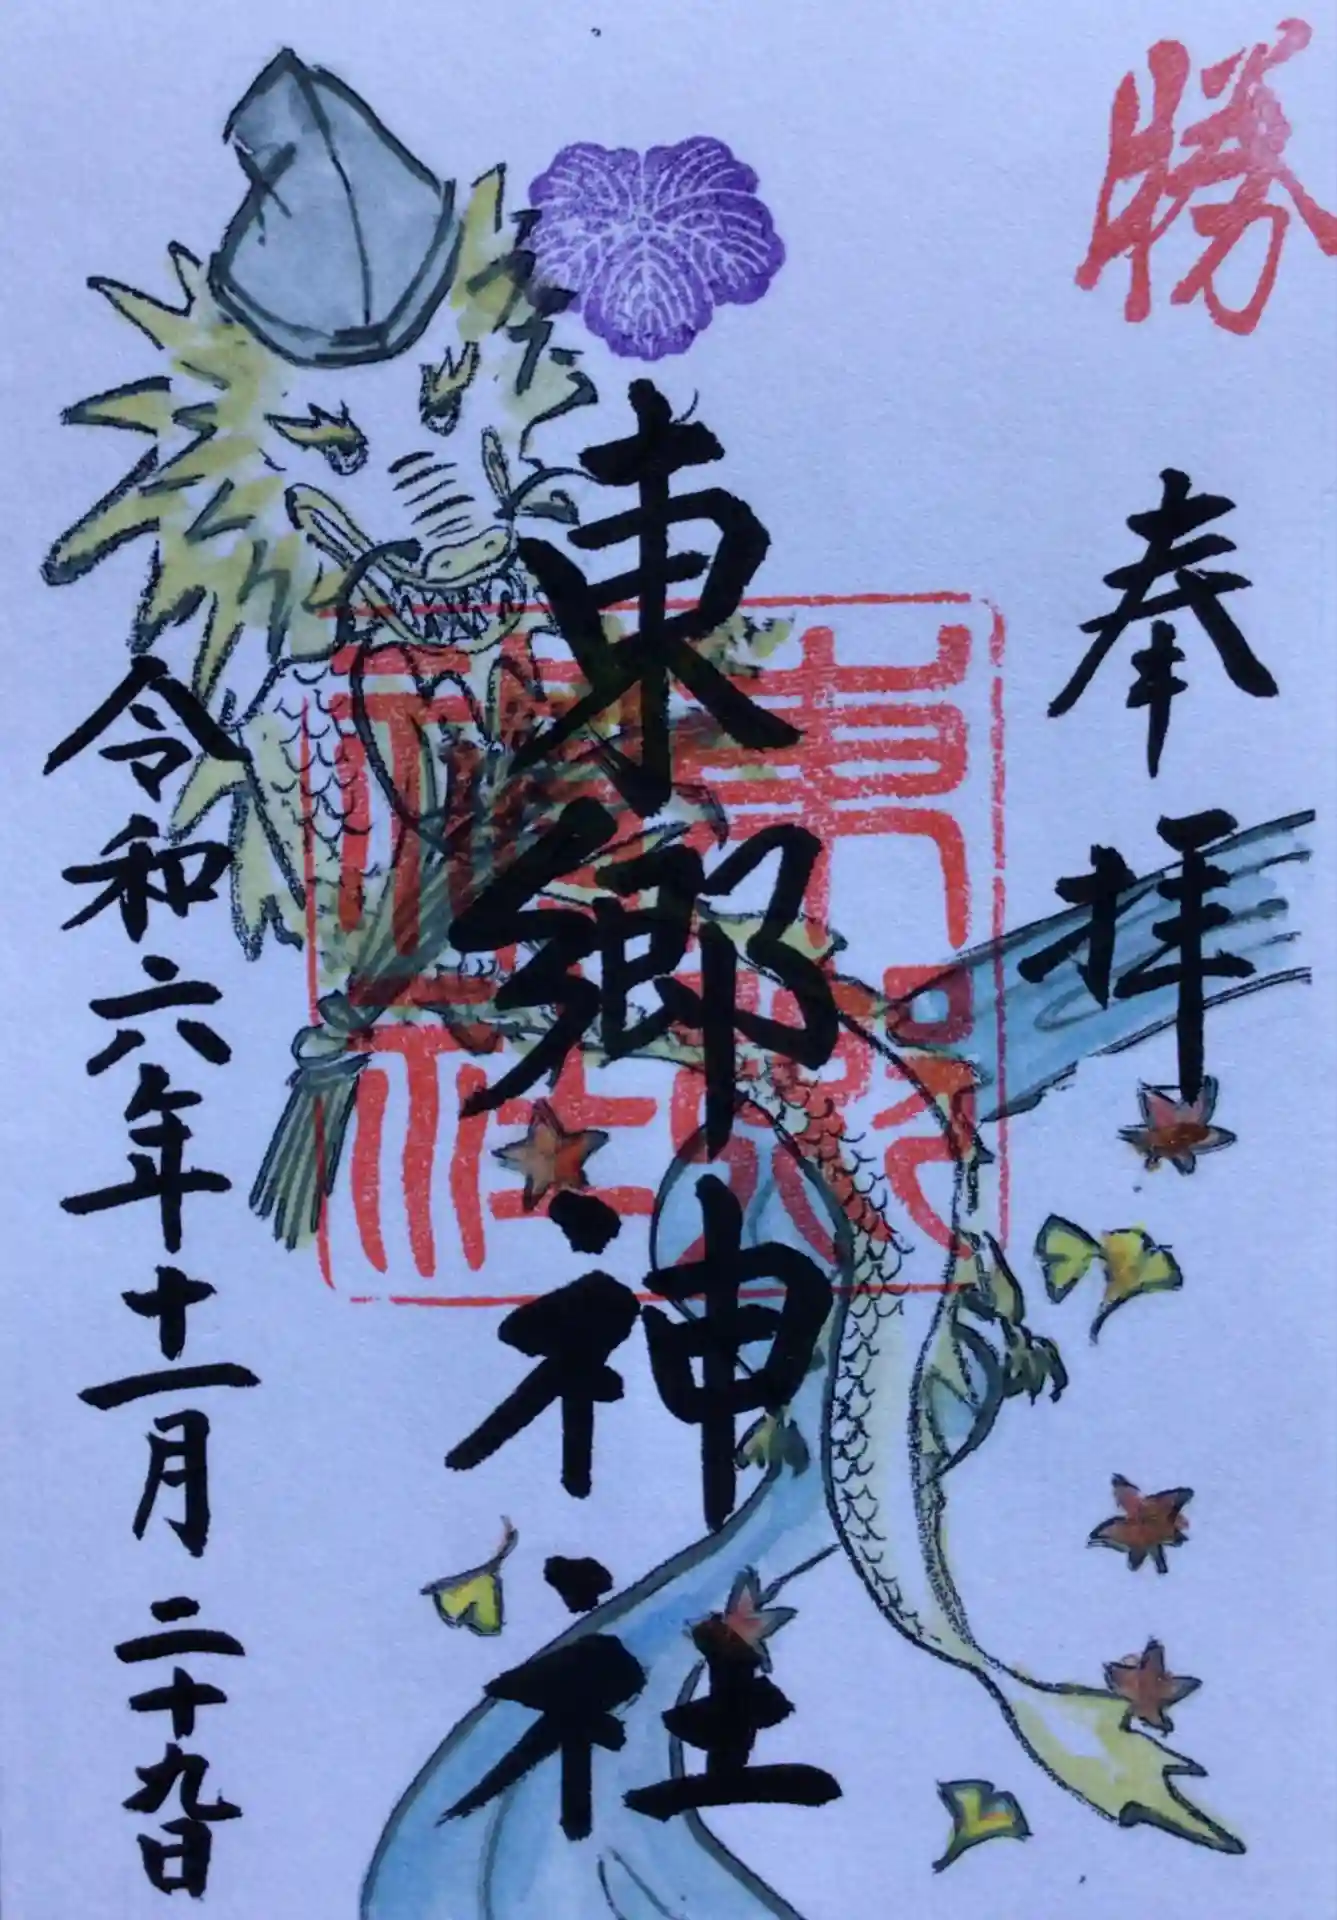 勝
奉拝
東郷神社
東郷
神社
令和六年十一月二十九日